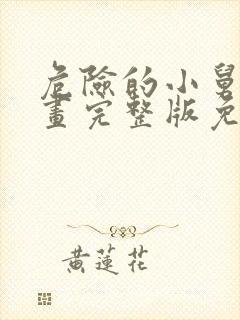 危險的小舅
畫完整版免
黃蓮花